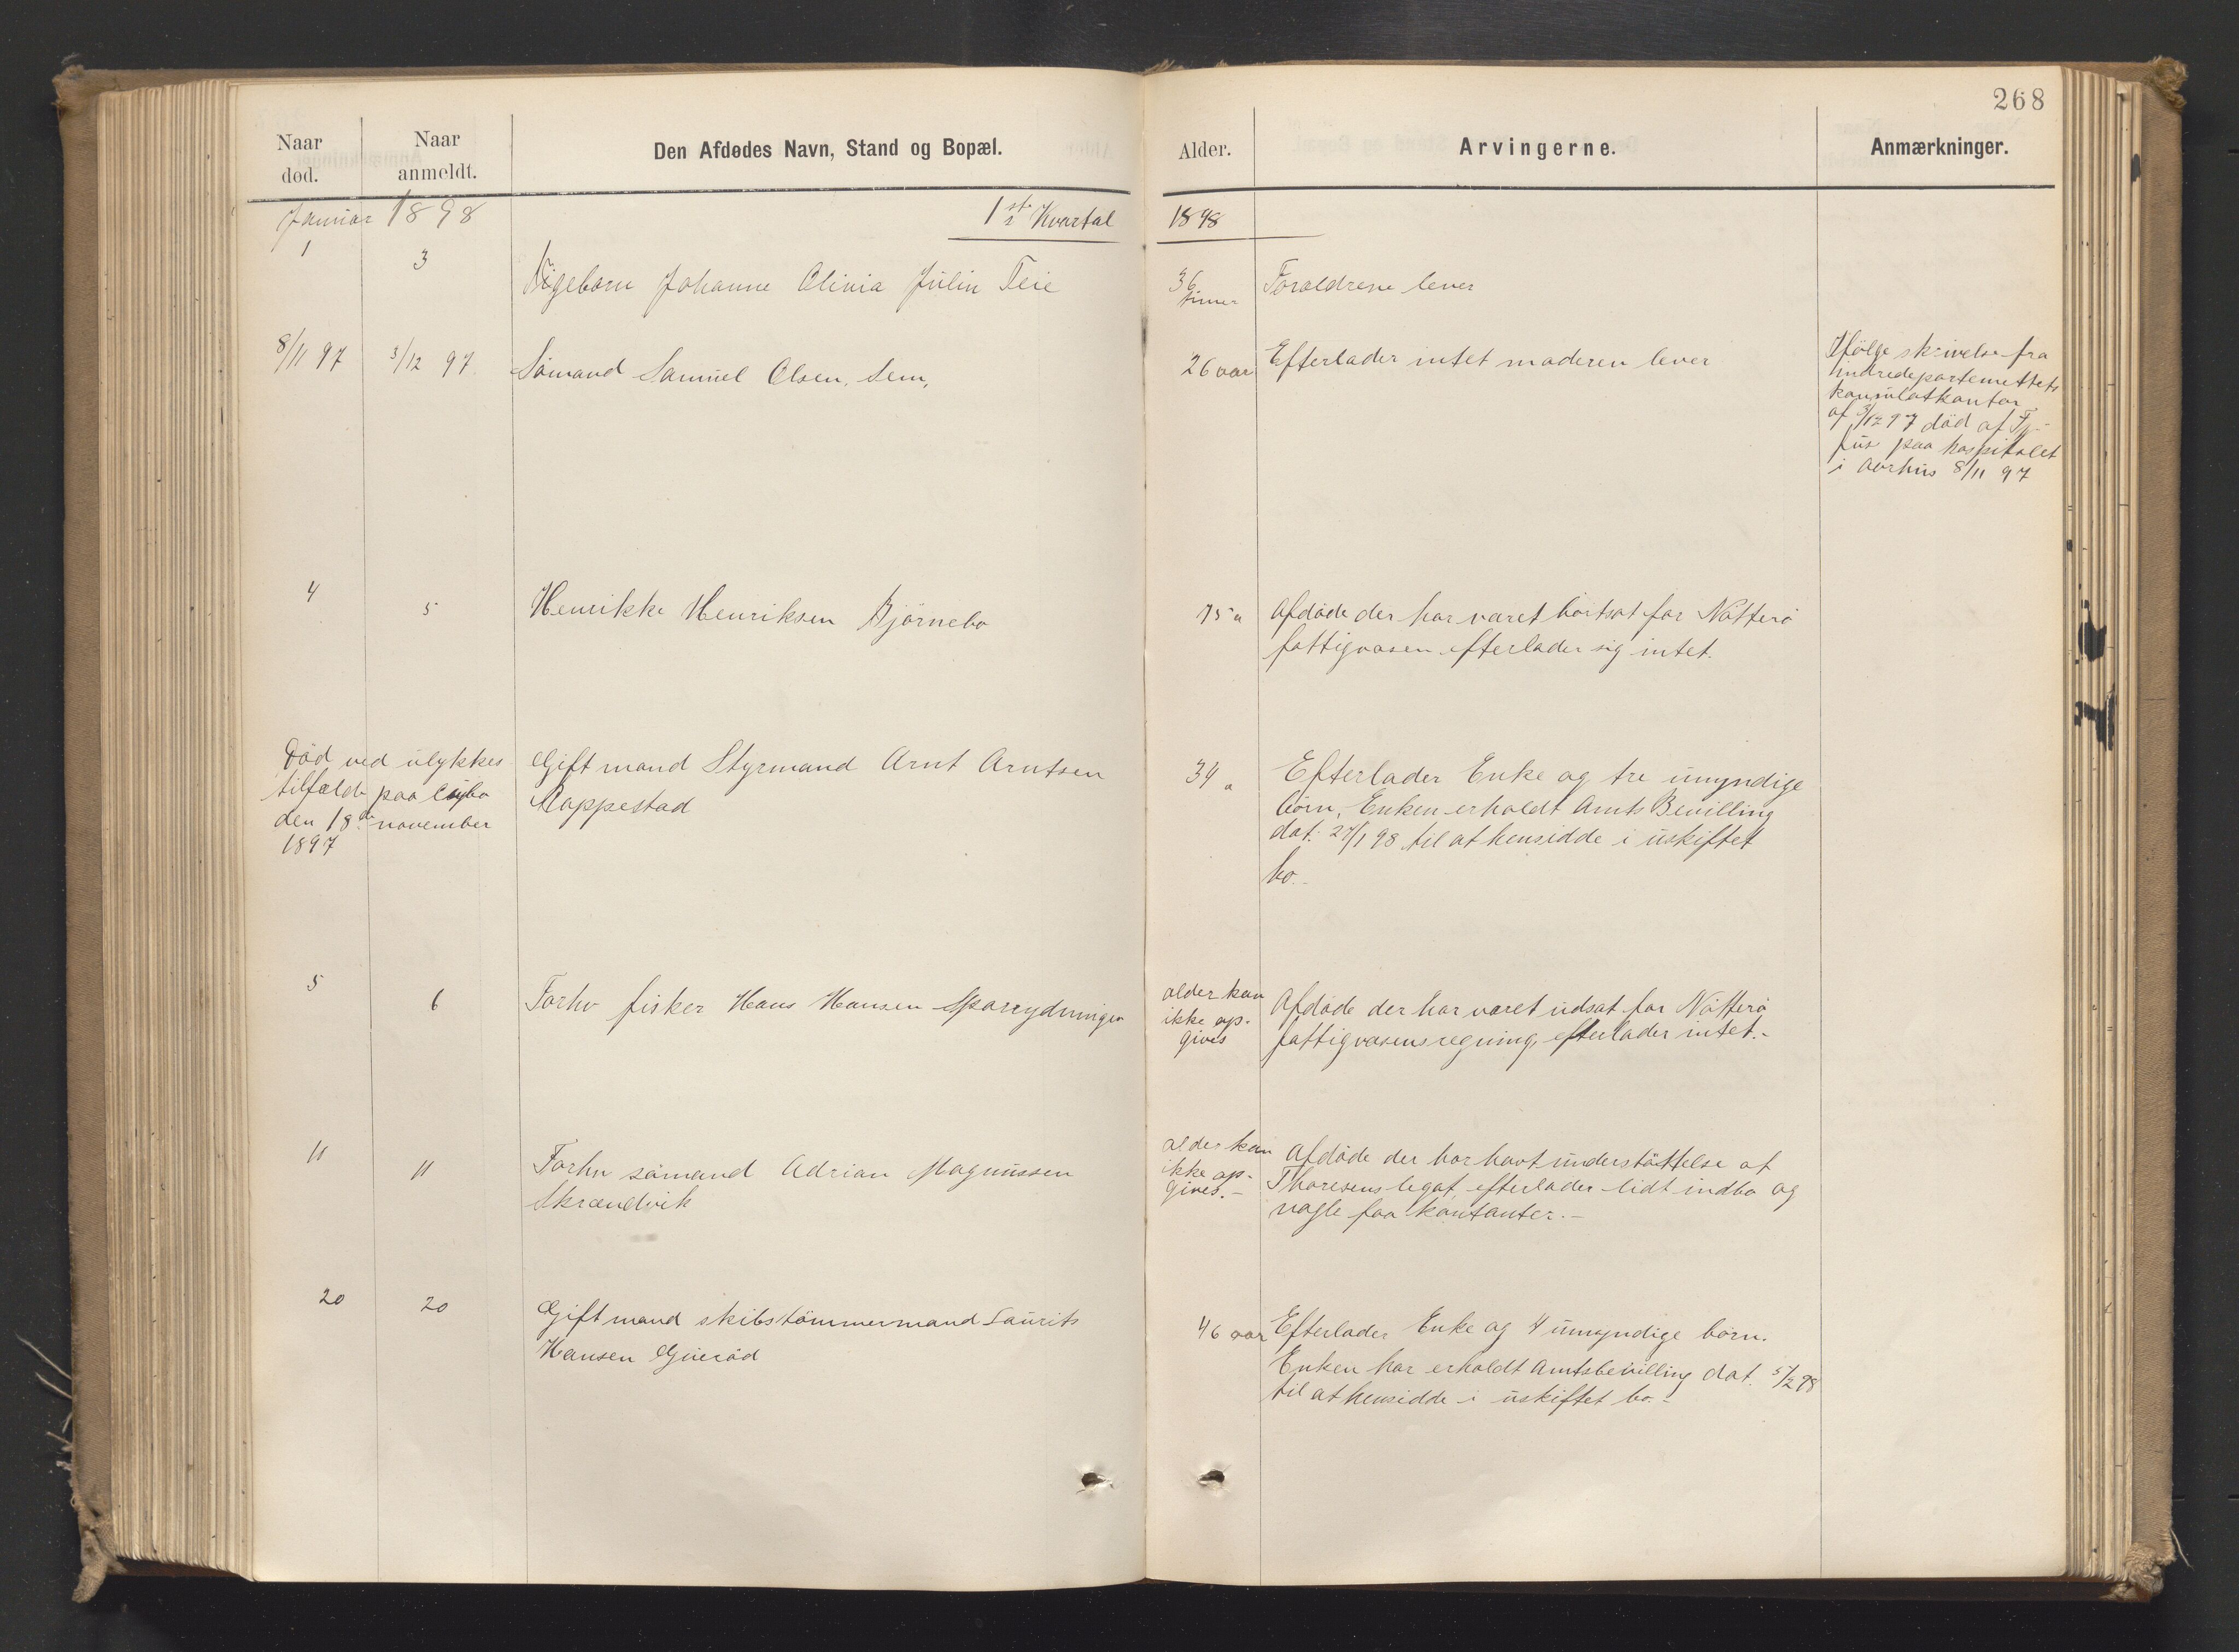 268
Naar død.
Naar anmeldt.
Den Afdødes Navn, Stand og Bopæl.
Alder.
Arvingerne.
Anmærkninger.
Januar 1898
1ste Kvartal
1898
1
3
Pigebarn Johanne Olivia Julin Teie
36 timer
Forældrene lever
8/11 97
3/12 97.
Sömand Samuel Olsen. Sem,
26 aar
Efterlader intet moderen lever
Ifölge skrivelse fra
Indredepartementets
konsulatkontor
af 3/12 97 död af Ty-
fus paa hospitalet
i Aarhus 8/11 97
4
5
Henrikke Henriksen Björnebo
75 a
Afdöde der har været bortsat for Nötterö
fattigvæsen efterlader sig intet.
Död ved ulykkes
tilfælde paa Cuba
den 18de november
1897
Gift mand Styrmand Arnt Arntsen
Rappestad
34 a
Efterlader Enke og tre umyndige
börn, Enken erholdt Amts Bevilling
dat: 27/1 98 til at hensidde i uskiftet
bo.-
5
6
Forhv fisker Hans Hansen Sparrydningen
alder kan
ikke op-
gives
Afdöde der har været udsat for Nötterö
fattigvæsens regning, efterlader intet.-
11
11
Forhv sömand Adrian Magnussen
Skrændvik
alder kan
ikke op-
gives.-
Afdöde der har havt understöttelse af
Thoresens legat, efterlader lidt indbo og
nogle faa kontanter.-
20
20
Gift mand skibstömmermand Laurits
Hansen Gueröd
46 aar
Efterlader Enke og 4 umyndige börn.
Enken har erholdt Amtsbevilling dat. 5/2 98
til at hensidde i uskiftet bo.-